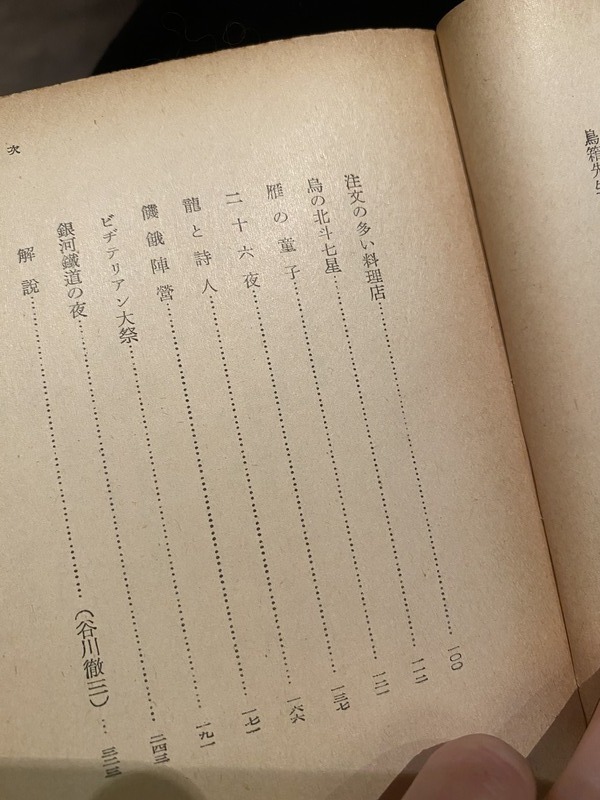 鳥箱先生
注文の多い料理店……一〇〇
烏の北斗七星……一一二
雁の童子……一二一
二十六夜……一三七
龍と詩人……一六六
饑餓陣營……一七一
ビヂテリアン大祭……一九一
銀河鐵道の夜……二四三
解說……(谷川徹三)……三二三
次